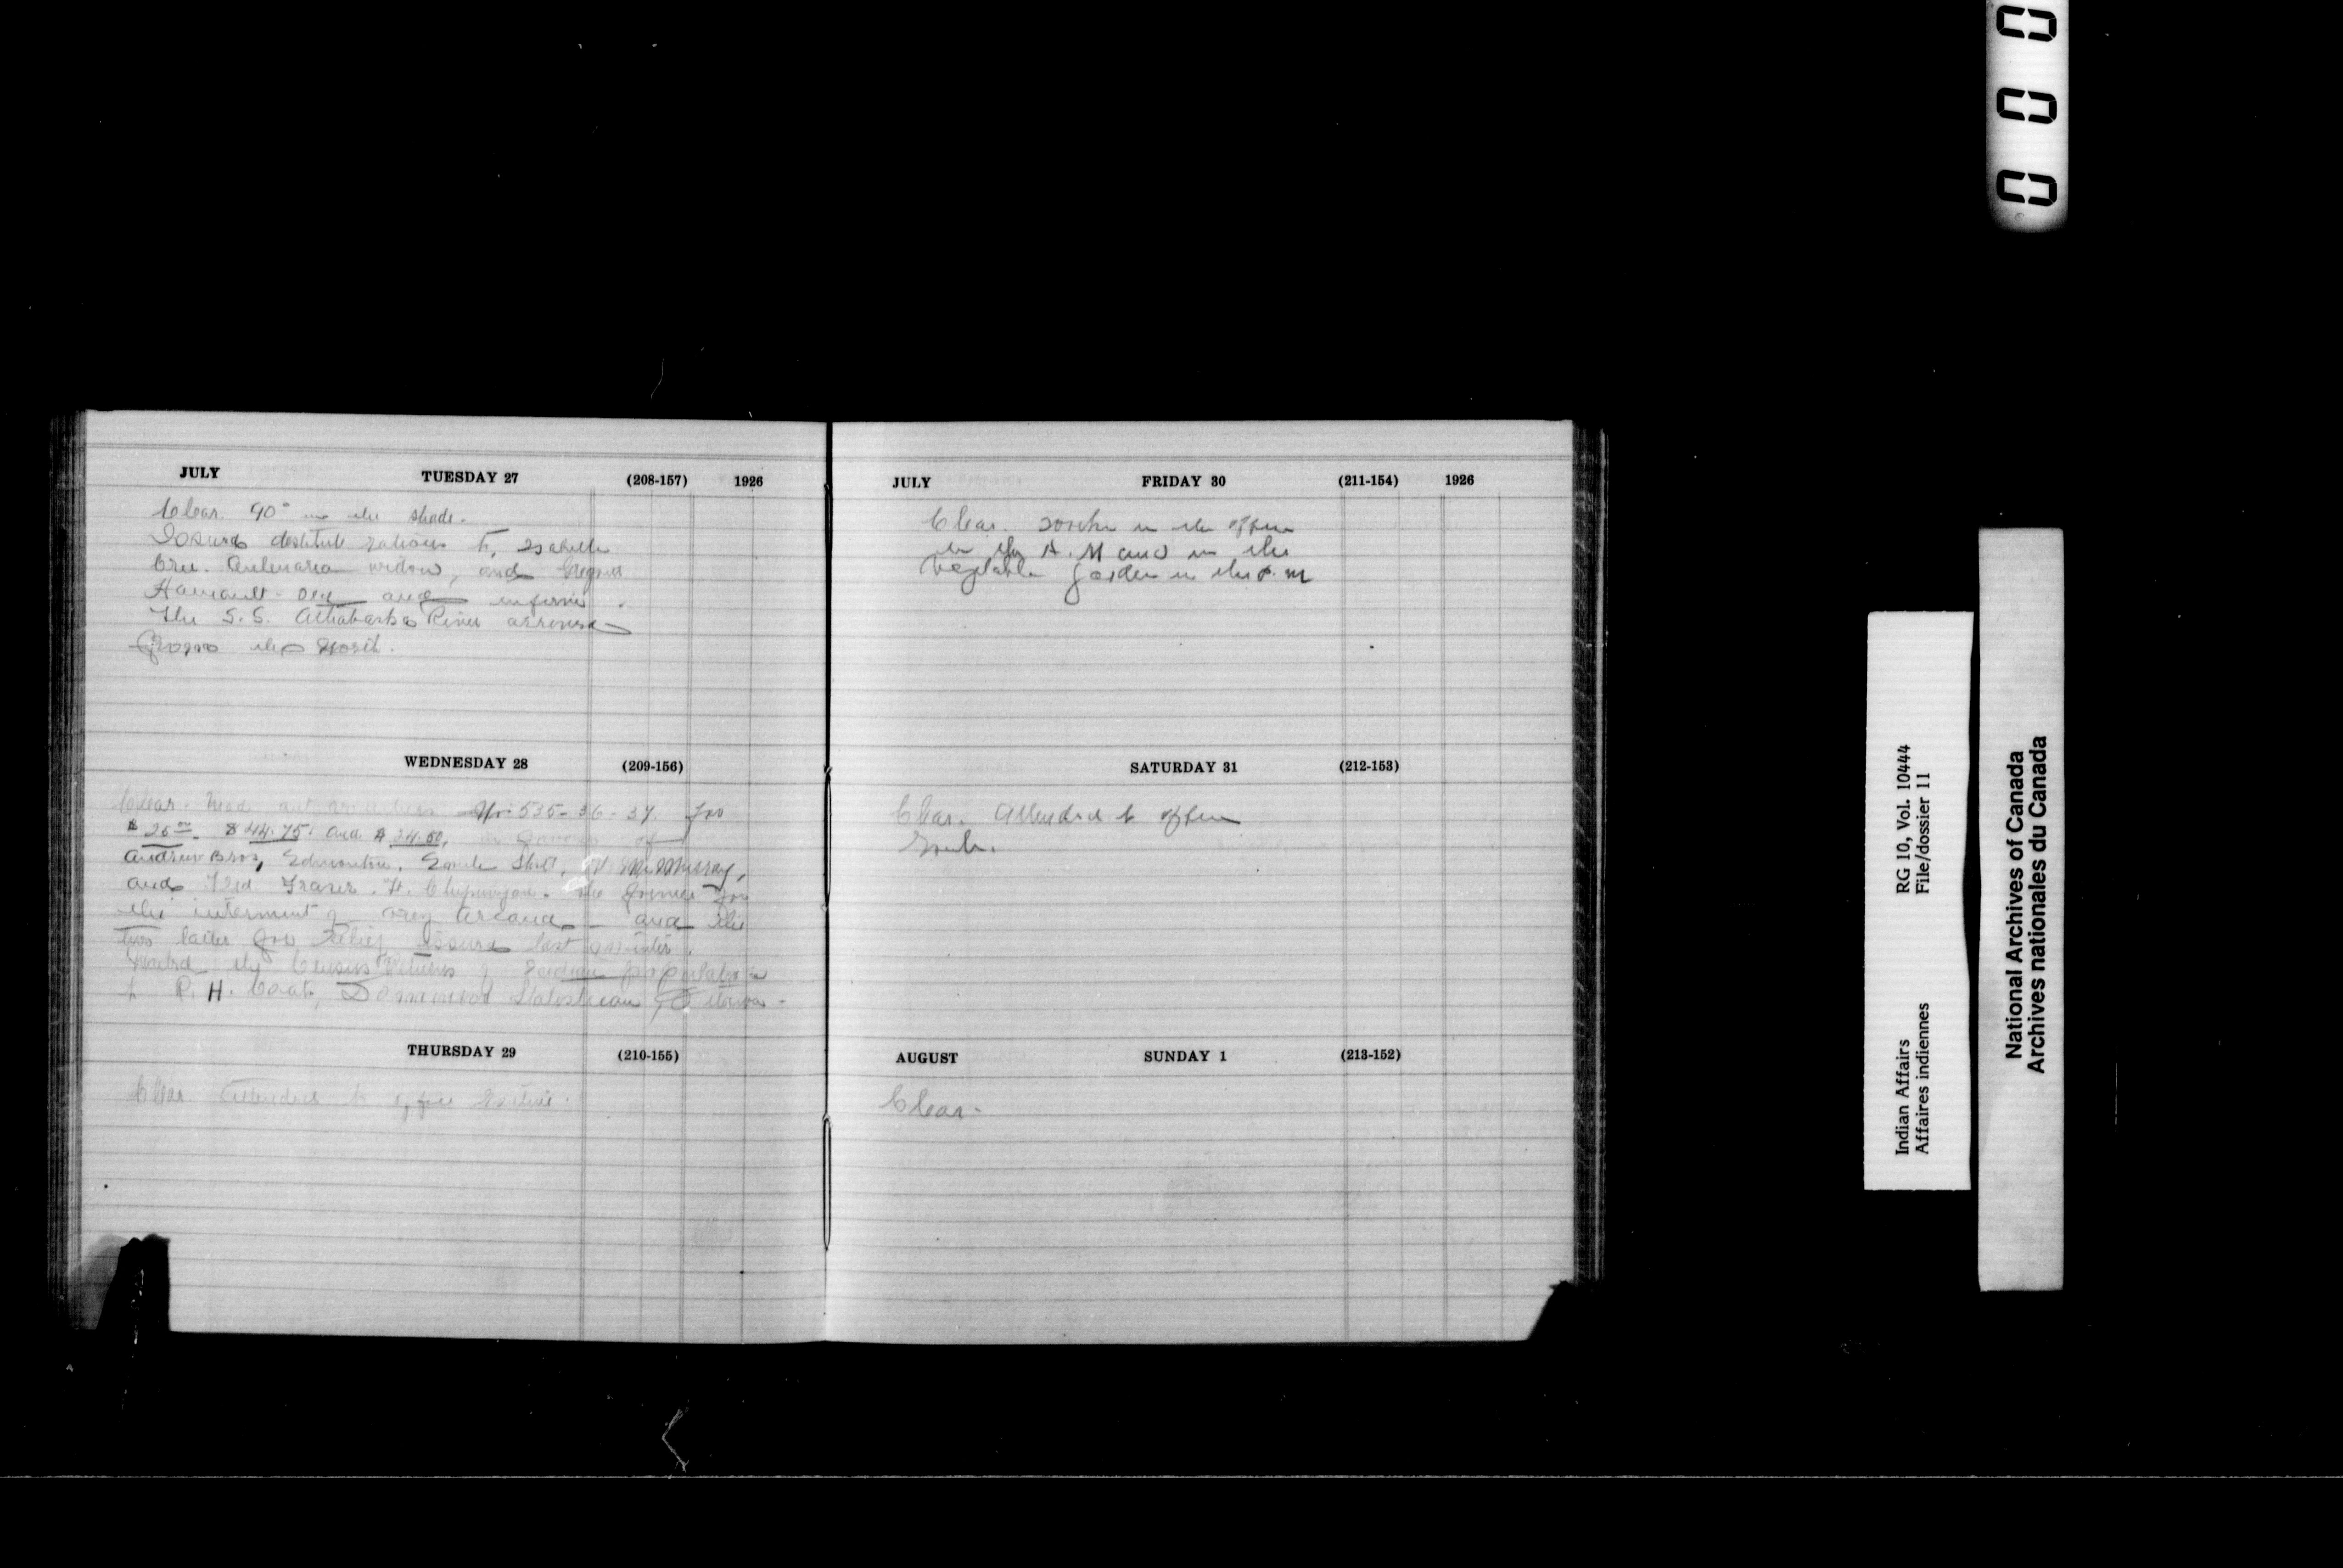 JULY TUESDAY 27 (208-157) 1926
Clear 90° in the shade.
Issued destitute rations to, Isabelle
Cree. widow, and
old and infirm.
The S.S. Athabaska River arrived
from the North.
WEDNESDAY 28 (209-156)
Clear. Made out vouchers No. 535-36-37. for
$25.00. $44.75. and $24.50, in favor of
Andrew Bros, Edmonton. Ft McMurray,
and Fred Fraser. Ft. Chipwyan. the former for
the interment of and the
two latter for relief issued last winter.
the Census Returns of Indian population
to R. H. Coats, Dominion Statistician Ottawa -
THURSDAY 29 (210-155)
Clear. Attended to office routine.
JULY FRIDAY 30 (211-154) 1926
Clear. in the office
in the A.M and in the
Vegetable garden in the P.M
SATURDAY 31 (212-153)
Clear. Attended to office
AUGUST SUNDAY 1 (213-152)
Clear-
0 0 0
Indian Affairs RG 10, Vol. 10444
Affaires indiennes File/dossier 11
National Archives of Canada
Archives nationales du Canada